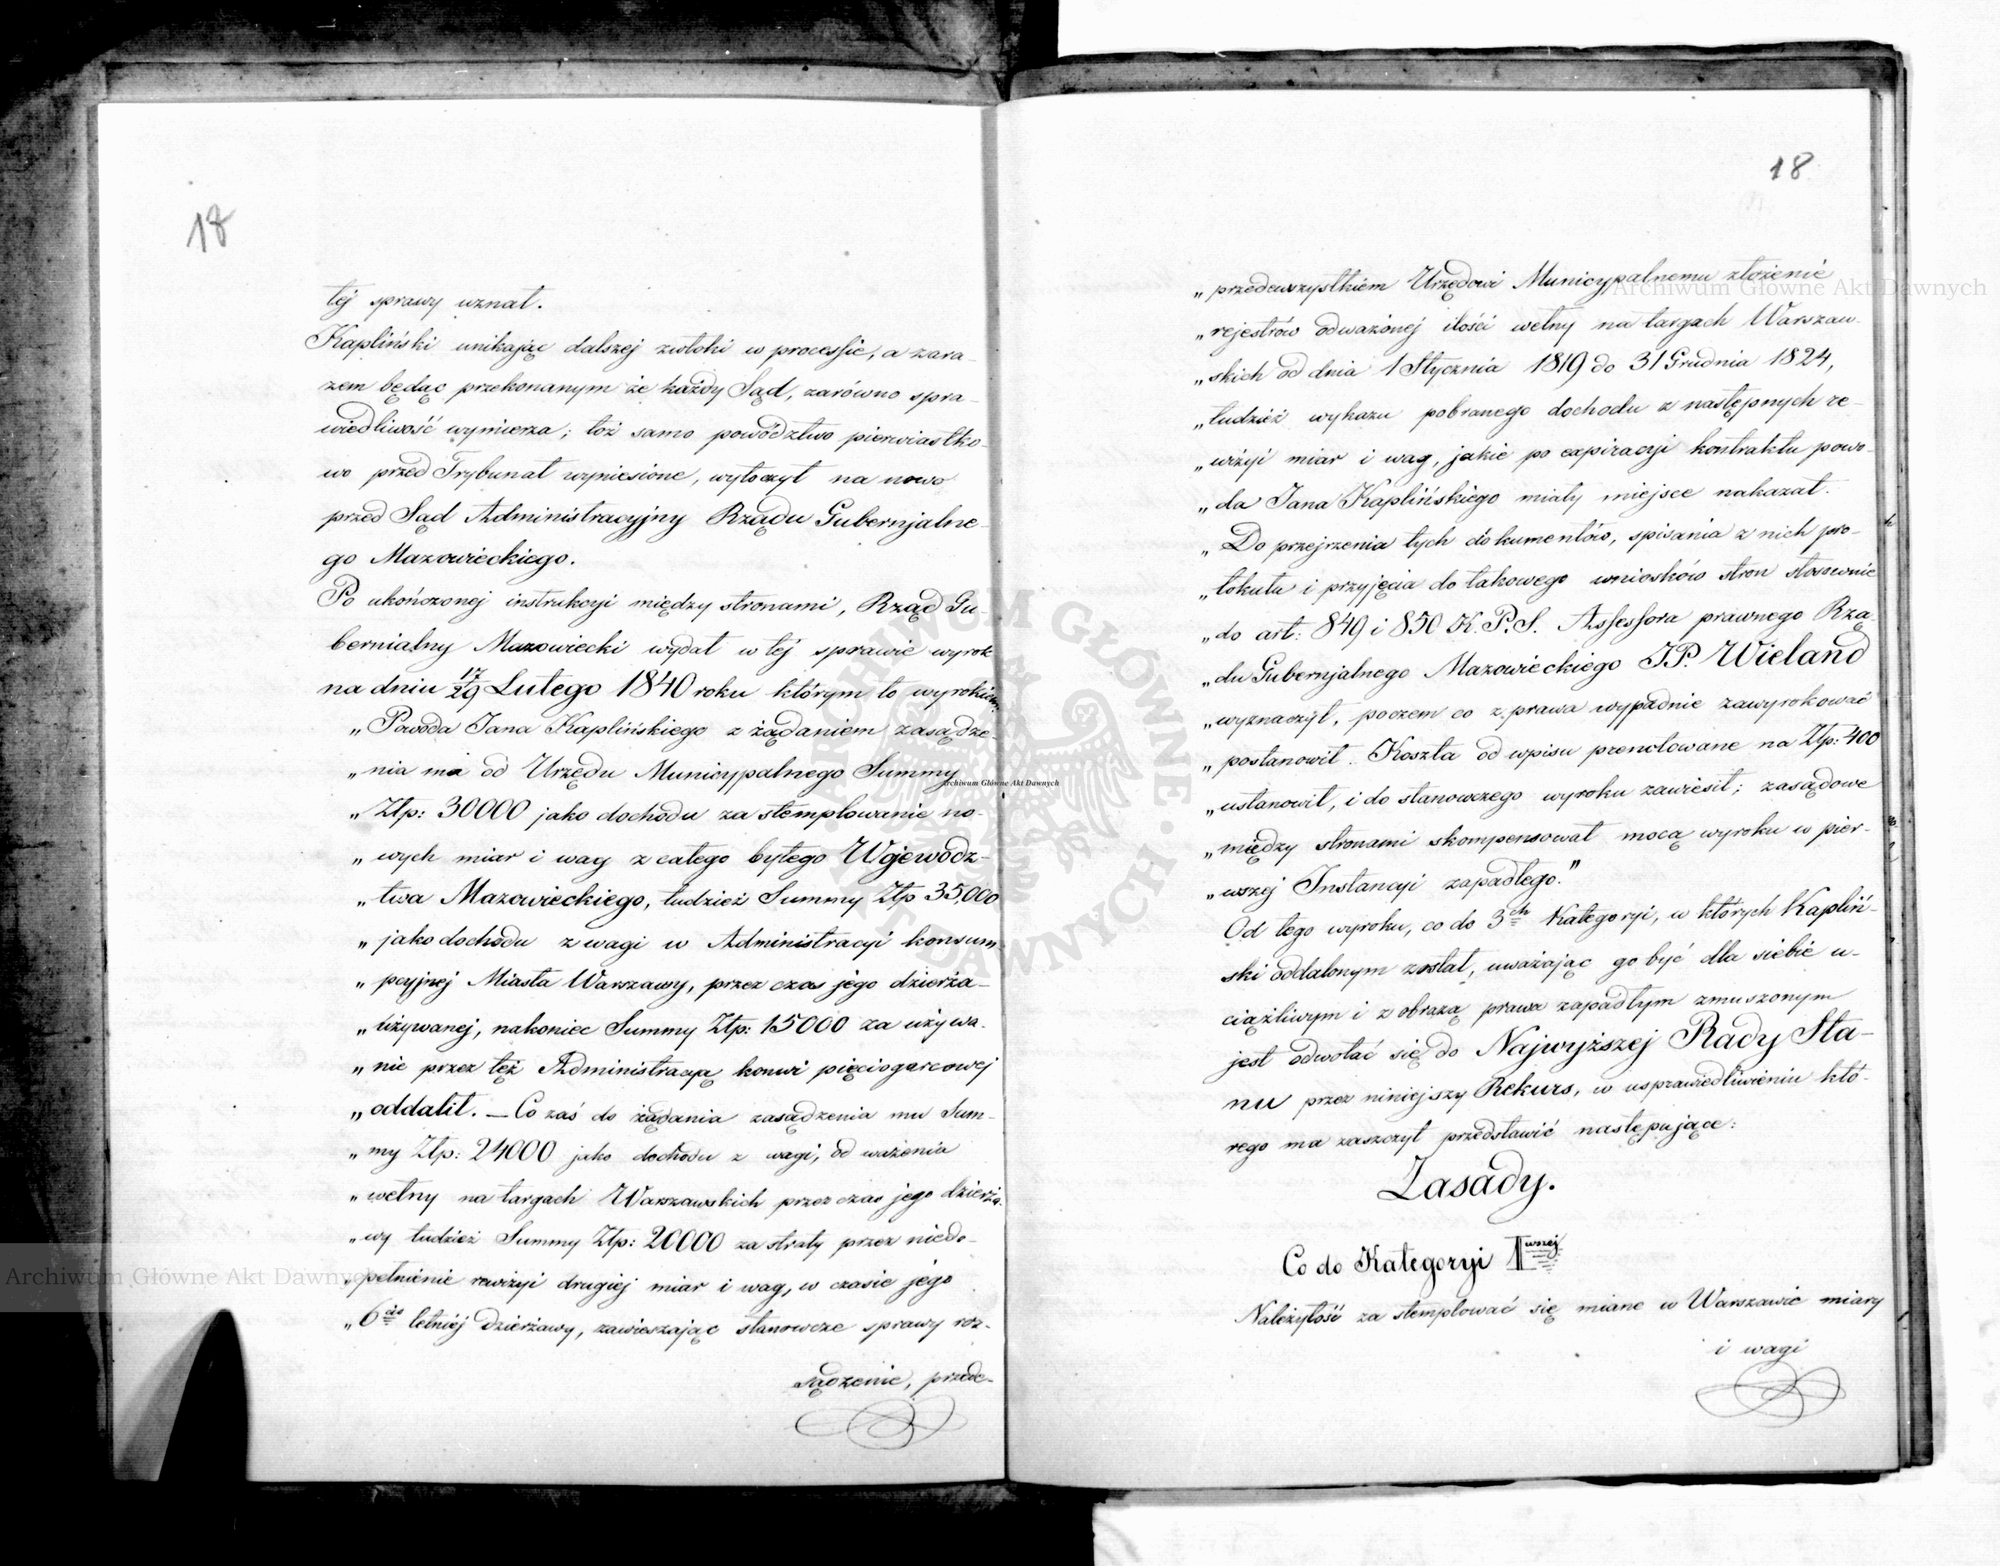 18
tej sprawy uznał.
Kapliński unikając dalszej zwłoki w processie, a zara-
zem będąc przekonanym że każdy Sąd, zarówno spra-
wiedliwość wymierza; toż samo powództwo pierwiastko-
wo przed Trybunał wyniesione, wytoczył na nowo
przed Sąd Administracyjny Rządu Gubernjalne-
go Mazowieckiego.
Po ukończonej instrukcyi między stronami, Rząd Gu-
bernialny Mazowiecki wydał w tej sprawie wyrok
na dniu 17/29 Lutego 1840 roku którym to wyrokiem:
„Powoda Jana Kaplińskiego z żądaniem zasądze-
„nia mu od Urzędu Municypalnego Summy
„Złp: 30000 jako dochodu za stemplowanie no-
„wych miar i wag z całego byłego Wojewódz-
„twa Mazowieckiego, tudzież Summy Złp 35,000
„jako dochodu z wagi w Administracyi konsum-
„pcyjnej Miasta Warszawy, przez czas jego dzierża-
„używanej, nakoniec Summy Złp: 15000 za używa-
„nie przez też Administracyą konwi pięciogarcowej
„oddalił. — Co zaś do żądania zasądzenia mu Sum-
„my Złp: 24000 jako dochodu z wagi, od ważenia
„wełny na targach Warszawskich przez czas jego dzierża-
„wy tudzież Summy Złp: 20000 za straty przez niedo-
„pełnienie rewizyi drugiej miar i wag, w czasie jego
„6cio letniej dzierżawy, zawieszając stanowcze sprawy roz-
sądzenie, przede-
18
„przedewszystkiem Urzędowi Municypalnemu złożenie
„rejestrów odważonej ilości wełny na targach Warszaw-
„skich od dnia 1 Stycznia 1819 do 31 Grudnia 1824,
„tudzież wykazu pobranego dochodu z następnych re-
„wizyi miar i wag, jakie po expiracyi kontraktu powo-
„da Jana Kaplińskiego miały miejsce nakazał.
„Do przejrzenia tych dokumentów, spisania z nich pro-
„tokułu i przyjęcia do takowego wniosków stron stosownie
„do art: 849 i 850 K. P. S. Assessora prawnego Rzą-
„du Gubernjalnego Mazowieckiego JP. Wieland
„wyznaczył, poczem co z prawa wypadnie zawyrokować
„postanowił. Koszta od wpisu prenotowane na Złp: 400
„ustanowił, i do stanowczego wyroku zawiesił; zasądowe
„między stronami skompensował mocą wyroku w pier-
„wszej Instancyi zapadłego."
Od tego wyroku, co do 3ch Kategoryi, w których Kapliń-
ski oddalonym został, uważając go być dla siebie u-
ciążliwym i z obrazą prawa zapadłym zmuszonym
jest odwołać się do Najwyższej Rady Sta-
nu przez niniejszy Rekurs, w usprawiedliwieniu któ-
rego ma zaszczyt przedstawić następujące:
Zasady.
Co do Kategoryi 1wszej
Należytość za stemplować się miane w Warszawie miary
i wagi
Archiwum Główne Akt Dawnych
Archiwum Główne Akt Dawnych
Archiwum Główne Akt Dawnych
ARCHIWUM GŁÓWNE AKT DAWNYCH